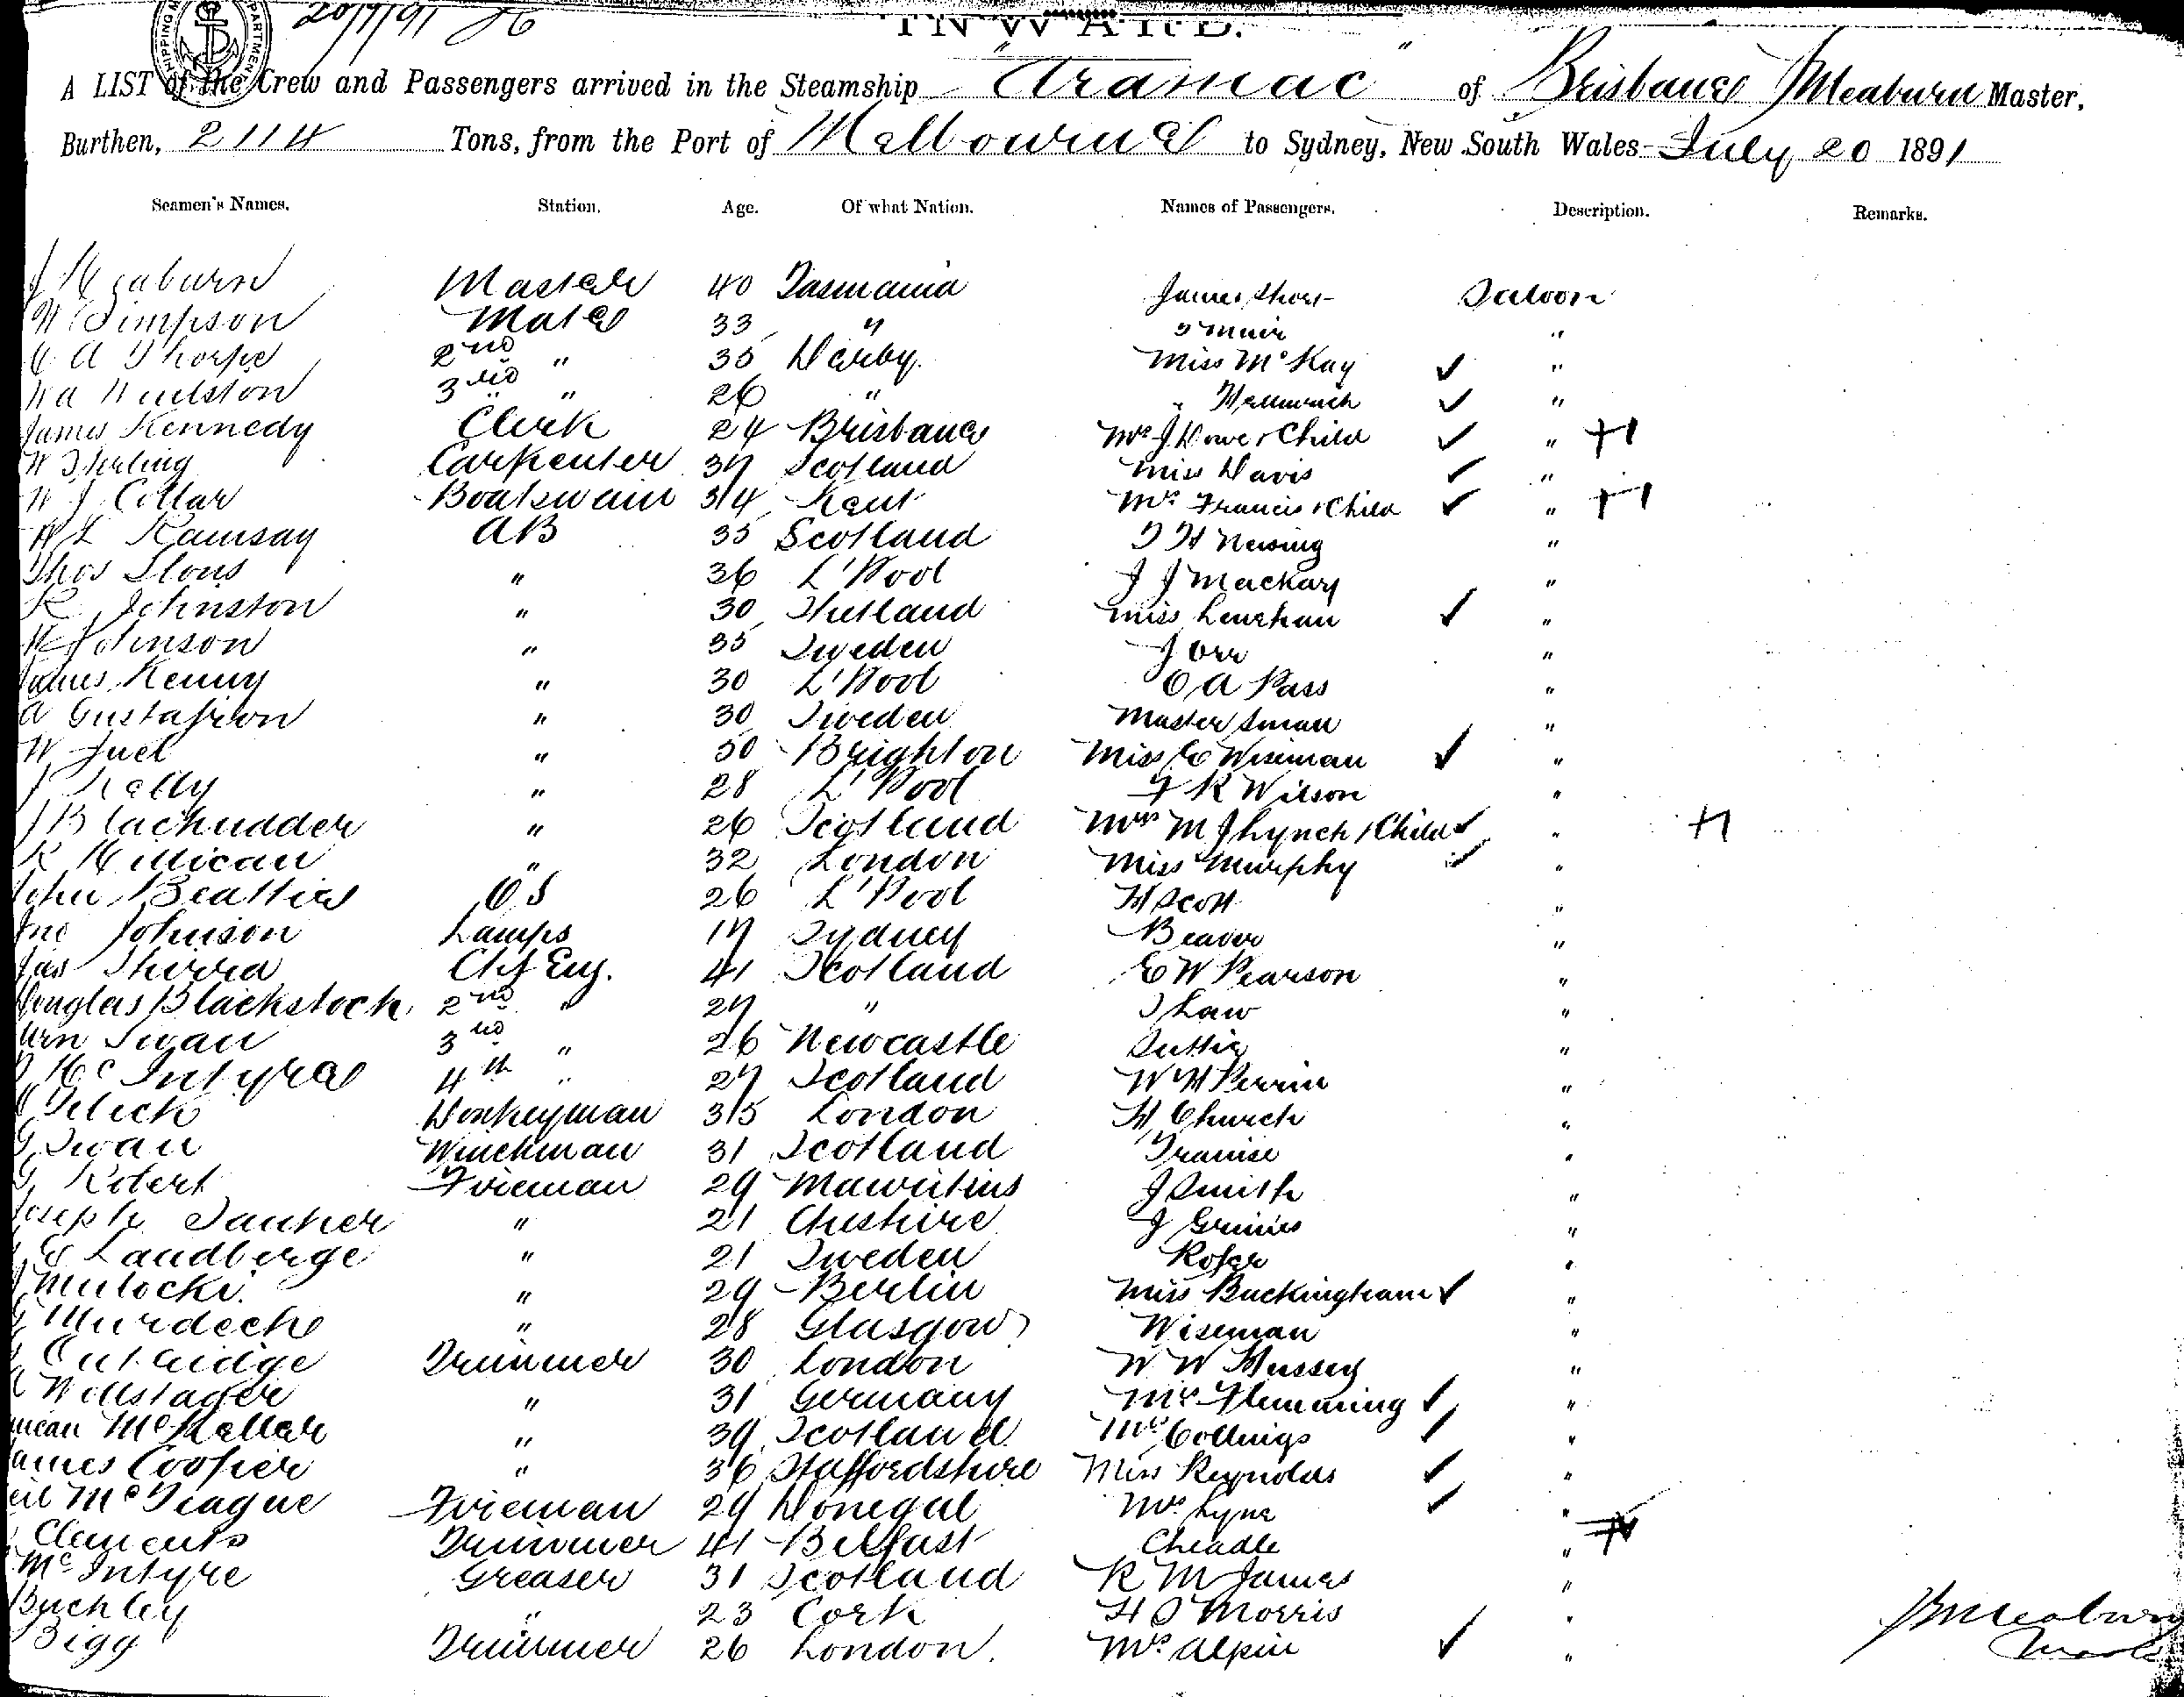 20/7/91 J6
INWARD.
A LIST of the Crew and Passengers arrived in the Steamship "Aramac" of Brisbane J Meaburn Master,
Burthen, 2114 Tons, from the Port of Melbourne to Sydney, New South Wales July 20 1891
Seamen's Names. Station. Age. Of what Nation. Names of Passengers. Description. Remarks.
J Meaburn Master 40 Tasmania James Short Saloon
W Simpson Mate 33 " J Muir "
C A Thorpe 2nd " 35 Derby Miss McKay ✓ "
3rd " 26 " " Hellmrich ✓ "
James Kennedy Clerk 24 Brisbane Mrs J Howe & Child ✓ "
W Sterling Carpenter 37 Scotland Miss Davis ✓ "
W J Collar Boatswain 34 Kent Mrs Francis & Child ✓ "
W L Ramsay AB 35 Scotland T H Nesing "
Thos Slous " 36 L'Pool J J Mackay "
R Johnston " 30 Shetland Miss Lenehan ✓ "
W Johnson " 35 Sweden J Orr "
James Kenny " 30 L'Pool C A Pass "
A Gustafson " 30 Sweden Master Sman "
W Juel " 50 Brighton Miss E Wiseman ✓ "
J Kelly " 28 L'Pool F R Wilson "
J Blachudder " 26 Scotland Mrs M J Lynch & Child ✓ "
R Millican " 32 London Miss Murphy ✓ "
John Beatties OS 26 L'Pool H Scott "
Jno Johnson Lamps 17 Sydney Beaver "
Jas Shirra Chf Eng. 41 Scotland E W Pearson "
Douglas Blackstock 2nd " 27 " J Law "
Wm Swan 3rd " 26 Newcastle Suttie "
McIntyre 4th " 27 Scotland W H Perrin "
Donkeyman 35 London H Church "
G Swan Winchman 31 Scotland "
G Robert Fireman 29 Mauritius J Smith "
Joseph Tauher " 21 Cheshire J Grimes "
E Landberge " 21 Sweden Roser "
Mulocki " 29 Berlin Miss Buckingham ✓ "
Murdeche " 28 Glasgow Wiseman "
Outridge Trimmer 30 London W W Hussey "
Wollslager " 31 Germany Mrs Flemming ✓ "
McKellar " 39 Scotland Mrs Collings ✓ "
James Cooper " 36 Staffordshire Miss Reynolds ✓ "
McTeague Fireman 29 Donegal Mrs Lyne ✓ "
Clements Trimmer 41 Belfast Cheadle "
McIntyre Greaser 31 Scotland R M James "
Buckley " 23 Cork H T Morris "
Bigg Trimmer 26 London Mrs Alpin ✓ "
J Meaburn
Master